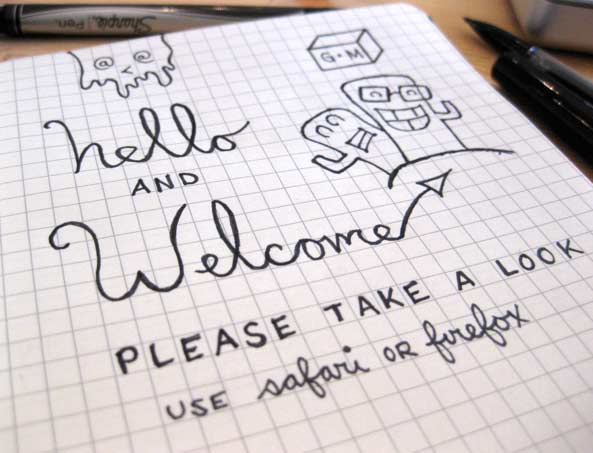 Sharpie Pen.
G·M
hello
AND
Welcome
PLEASE TAKE A LOOK
USE safari OR firefox